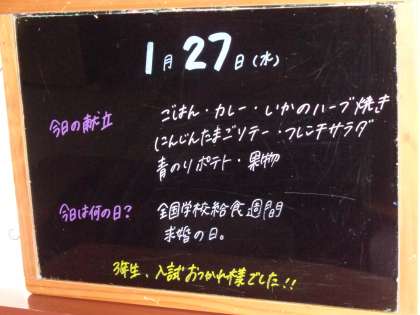 1月27日(水)
今日の献立
ごはん・カレー・いかのハーブ焼き
にんじんたまごソテー・フレンチサラダ
青のりポテト・果物
今日は何の日?
全国学校給食週間
求婚の日。
3年生、入試おつかれ様でした!!